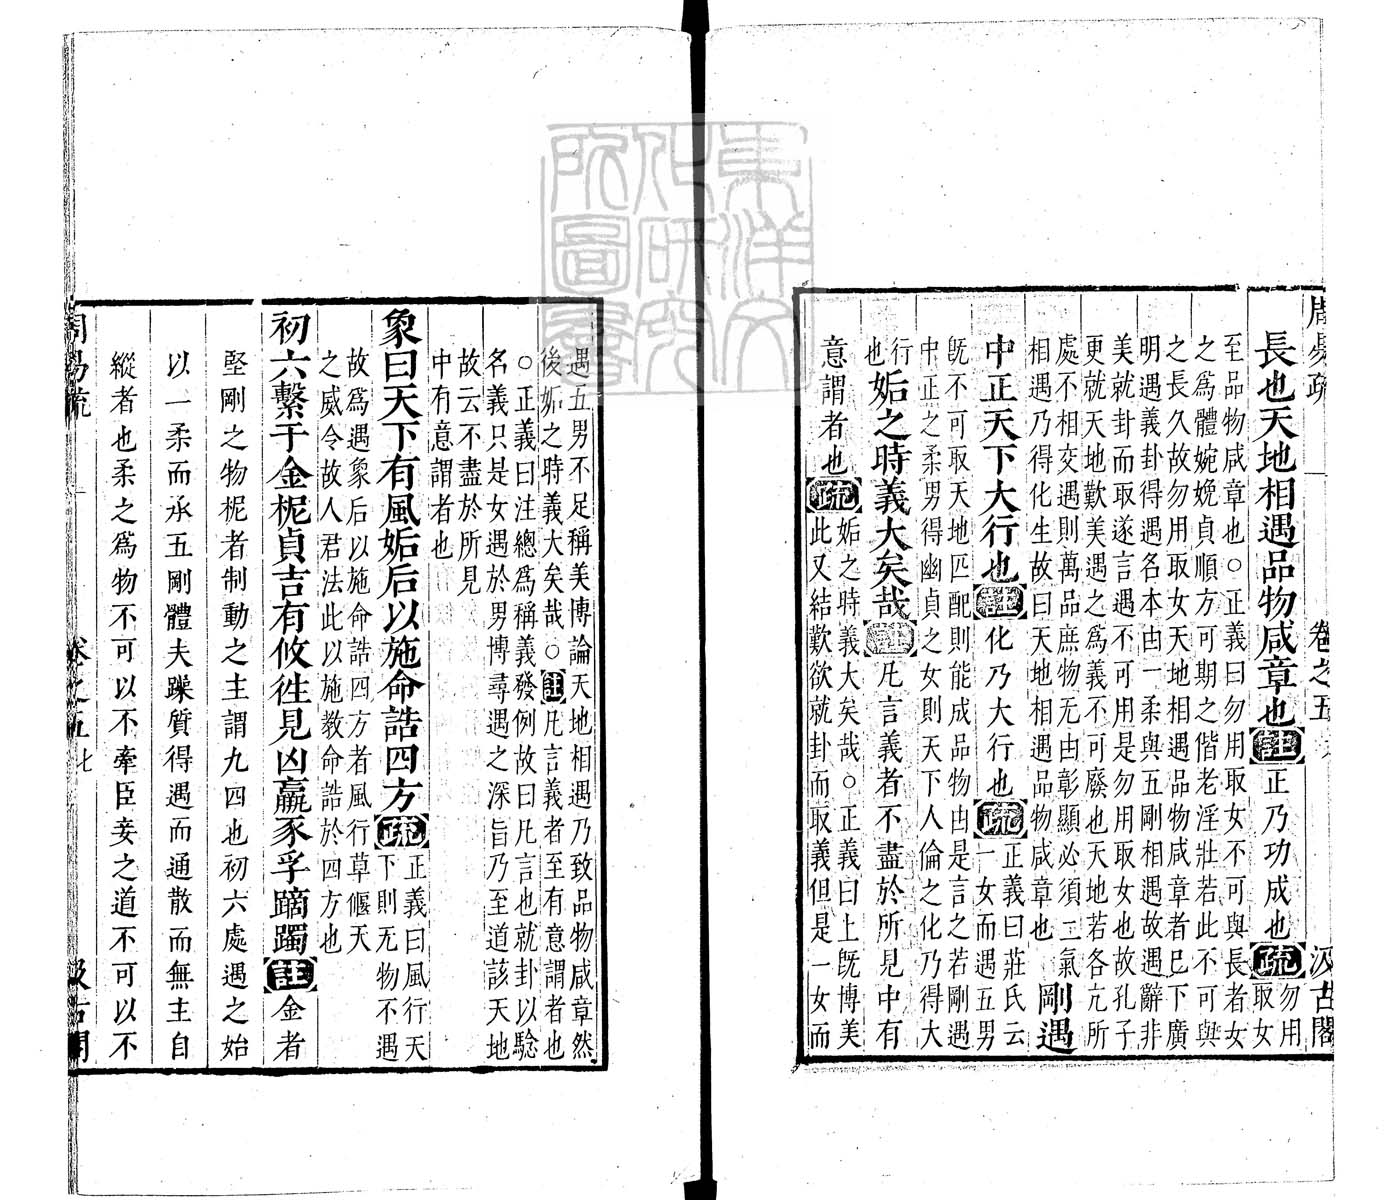 周易疏 卷之五 汲古閣
長也天地相遇品物咸章也註正乃功成也疏勿用
取女
至品物咸章也○正義曰勿用取女不可與長者女
之爲體婉娩貞順方可期之偕老淫壯若此不可與
之長久故勿用取女天地相遇品物咸章者已下廣
明遇義卦得遇名本由一柔與五剛相遇故遇辭非
美就卦而取遂言遇不可用是勿用取女也故孔子
更就天地歎美遇之爲義不可廢也天地若各亢所
處不相交遇則萬品庶物无由彰顯必須二氣
相遇乃得化生故曰天地相遇品物咸章也
剛遇
中正天下大行也註化乃大行也疏正義曰莊氏云
一女而遇五男
旣不可取天地匹配則能成品物由是言之若剛遇
中正之柔男得幽貞之女則天下人倫之化乃得大
行
也
姤之時義大矣哉註凡言義者不盡於所見中有
意謂者也疏姤之時義大矣哉○正義曰上旣博美
此又結歎欲就卦而取義但是一女而
遇五男不足稱美博論天地相遇乃致品物咸章然
後姤之時義大矣哉○註凡言義者至有意謂者也
○正義曰注總爲稱義發例故曰凡言也就卦以驗
名義只是女遇於男博尋遇之深旨乃至道該天地
故云不盡於所見
中有意謂者也
象曰天下有風姤后以施命誥四方疏正義曰風行天
下則无物不遇
故爲遇象后以施命誥四方者風行草偃天
之威令故人君法此以施教命誥於四方也
初六繫于金柅貞吉有攸往見凶羸豕孚蹢躅註金者
堅剛之物柅者制動之主謂九四也初六處遇之始
以一柔而承五剛體夫躁質得遇而通散而無主自
縱者也柔之爲物不可以不牽臣妾之道不可以不
周易疏 卷之五 七 汲古閣
東洋文
化研究
所圖書